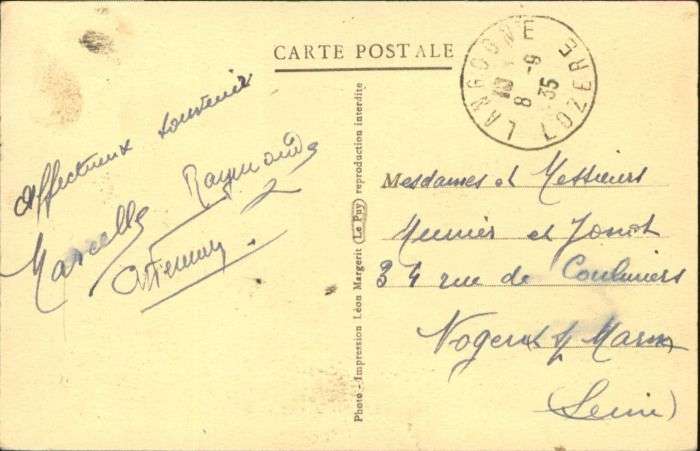 CARTE POSTALE
LANGOGNE
LOZERE
8 -9
35
Affectueux souvenir
Raymonde
Marcelle
Photo - Impression Léon Margerit (Le Puy) reproduction interdite
Mesdames et Messieurs
Meunier et
34 rue de Coulmiers
Nogent s/ Marne
(Seine)